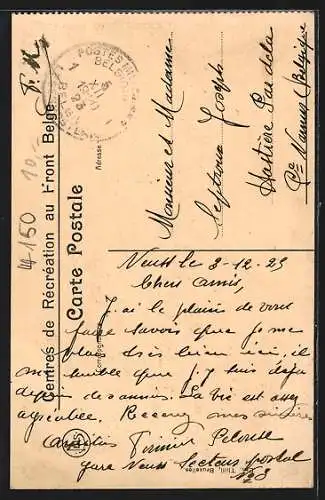 Centres de Récréation au Front Belge
Carte Postale
Correspondance
Adresse
F. M.
POSTES MILITAIRES
BELGIQUE
4150
10,-
Monsieur et Madame
Joseph
Hastière Par delà
Pce Namur (Belgique)
Neuss le 3-12-25
Chers Amis,
J'ai le plaisir de vous
faire savoir que je me
plais très bien ici, il
me semble que j'y suis déjà
depuis des années. La vie est assez
agréable. Recevez mes sincères
amitiés Firmin
gare Neuss Secteur postal
Thill, Bruxelles